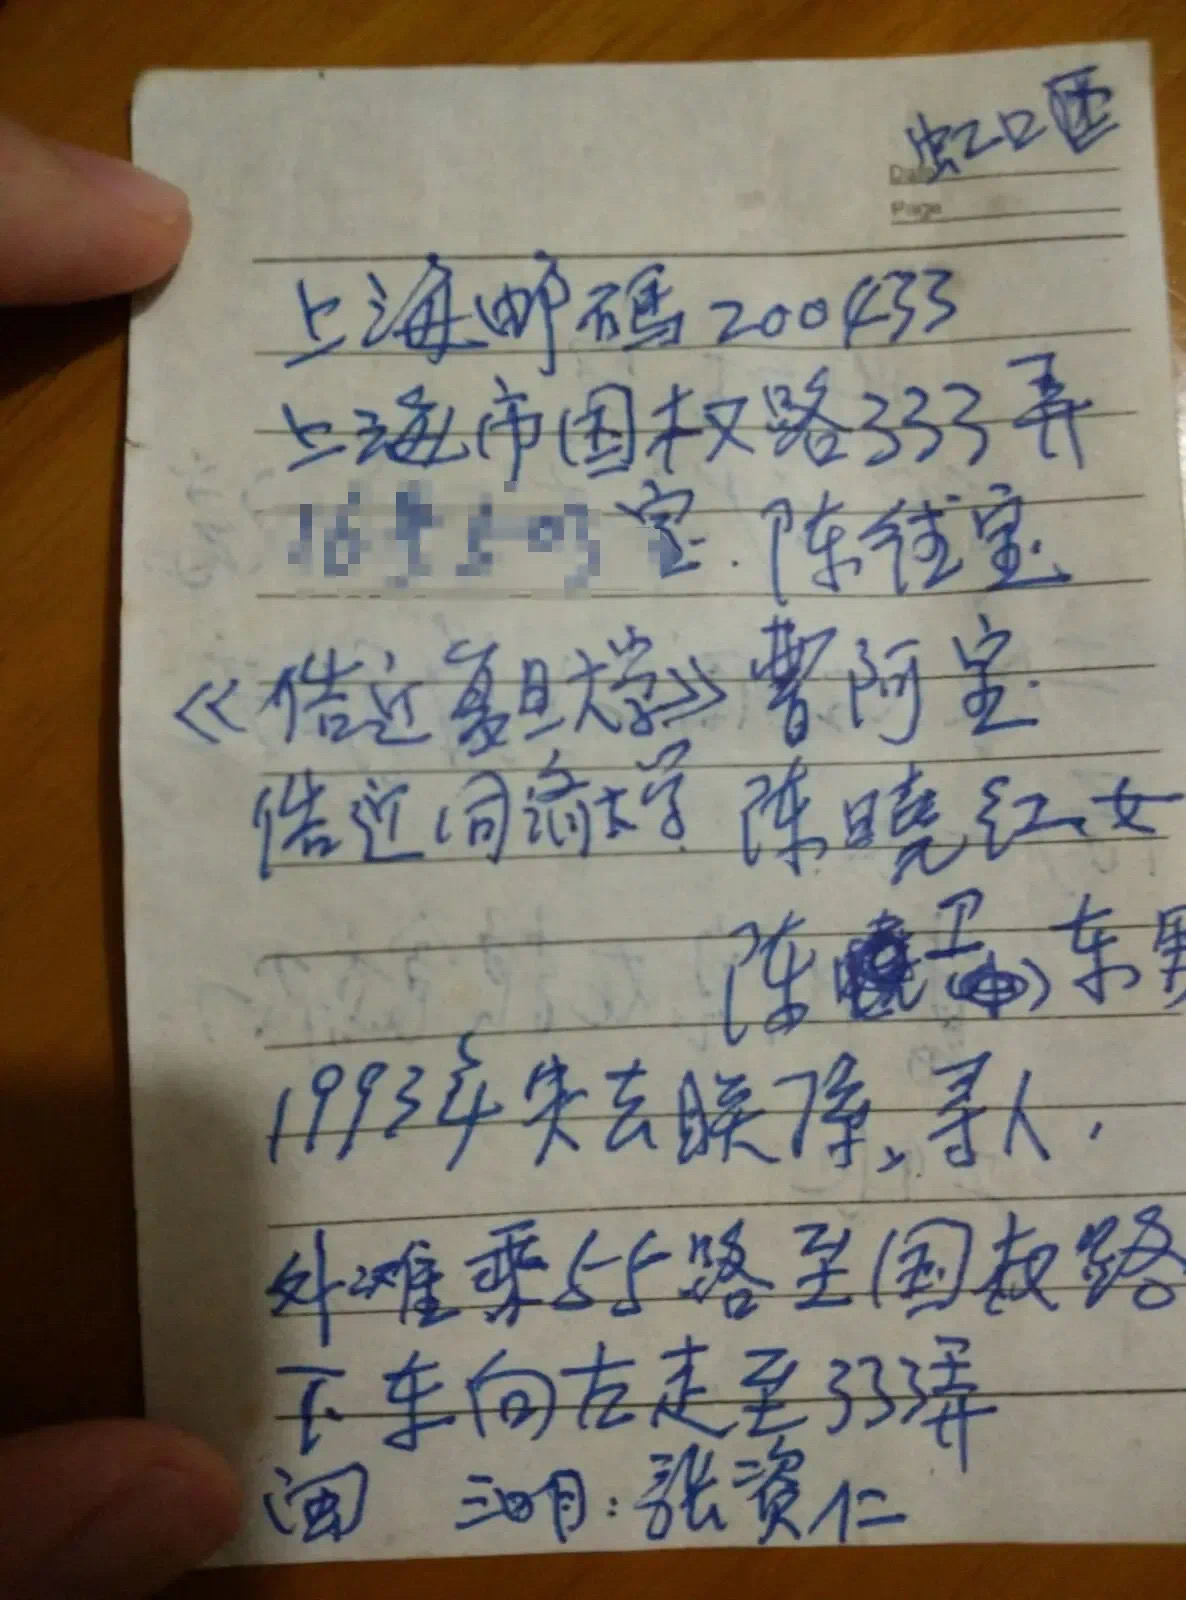 虹口区
Date
Page
上海邮码200433
上海市国权路333弄
室.陈往宝.
《偌近复旦大学》曹阿宝.
偌近同济大学 陈晓红女
陈 卫 东男
1993年失去联系,寻人.
外滩乘55路至国权路
下车向左走至333弄
闽 三明:张资仁